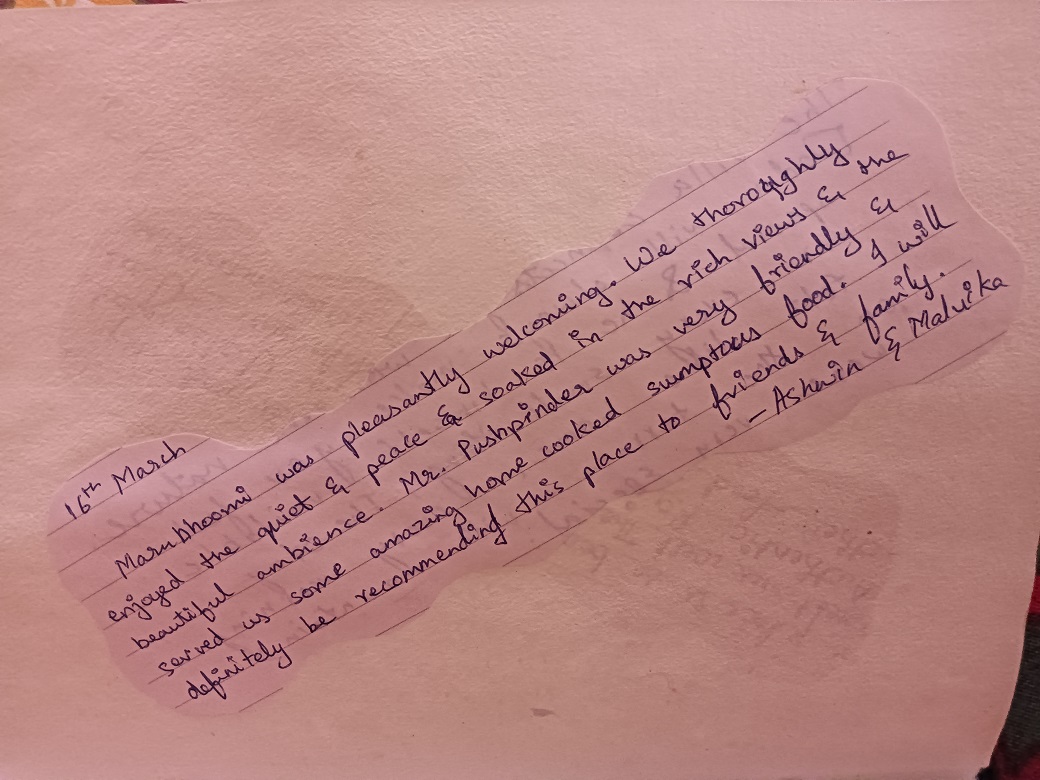 16th March
Marubhoomi was pleasantly welcoming. We thoroughly
enjoyed the quiet & peace & soaked in the rich views & the
beautiful ambience. Mr. Pushpinder was very friendly &
served us some amazing home cooked sumptous food. I will
definitely be recommending this place to friends & family.
- Ashwin & Malvika